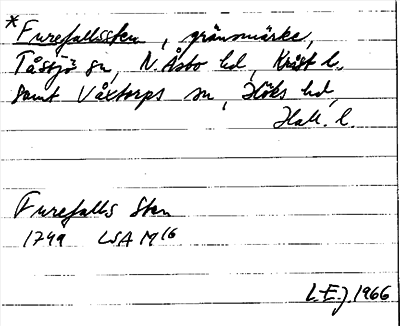 * Furefallssten, gränsmärke,
Tåssjö sn, N. Åsbo hd, Krist l.
samt Våxtorps sn, Höks hd,
Hall. l.
Furefalls Sten
1749 LSA M16
L.E.J. 1966